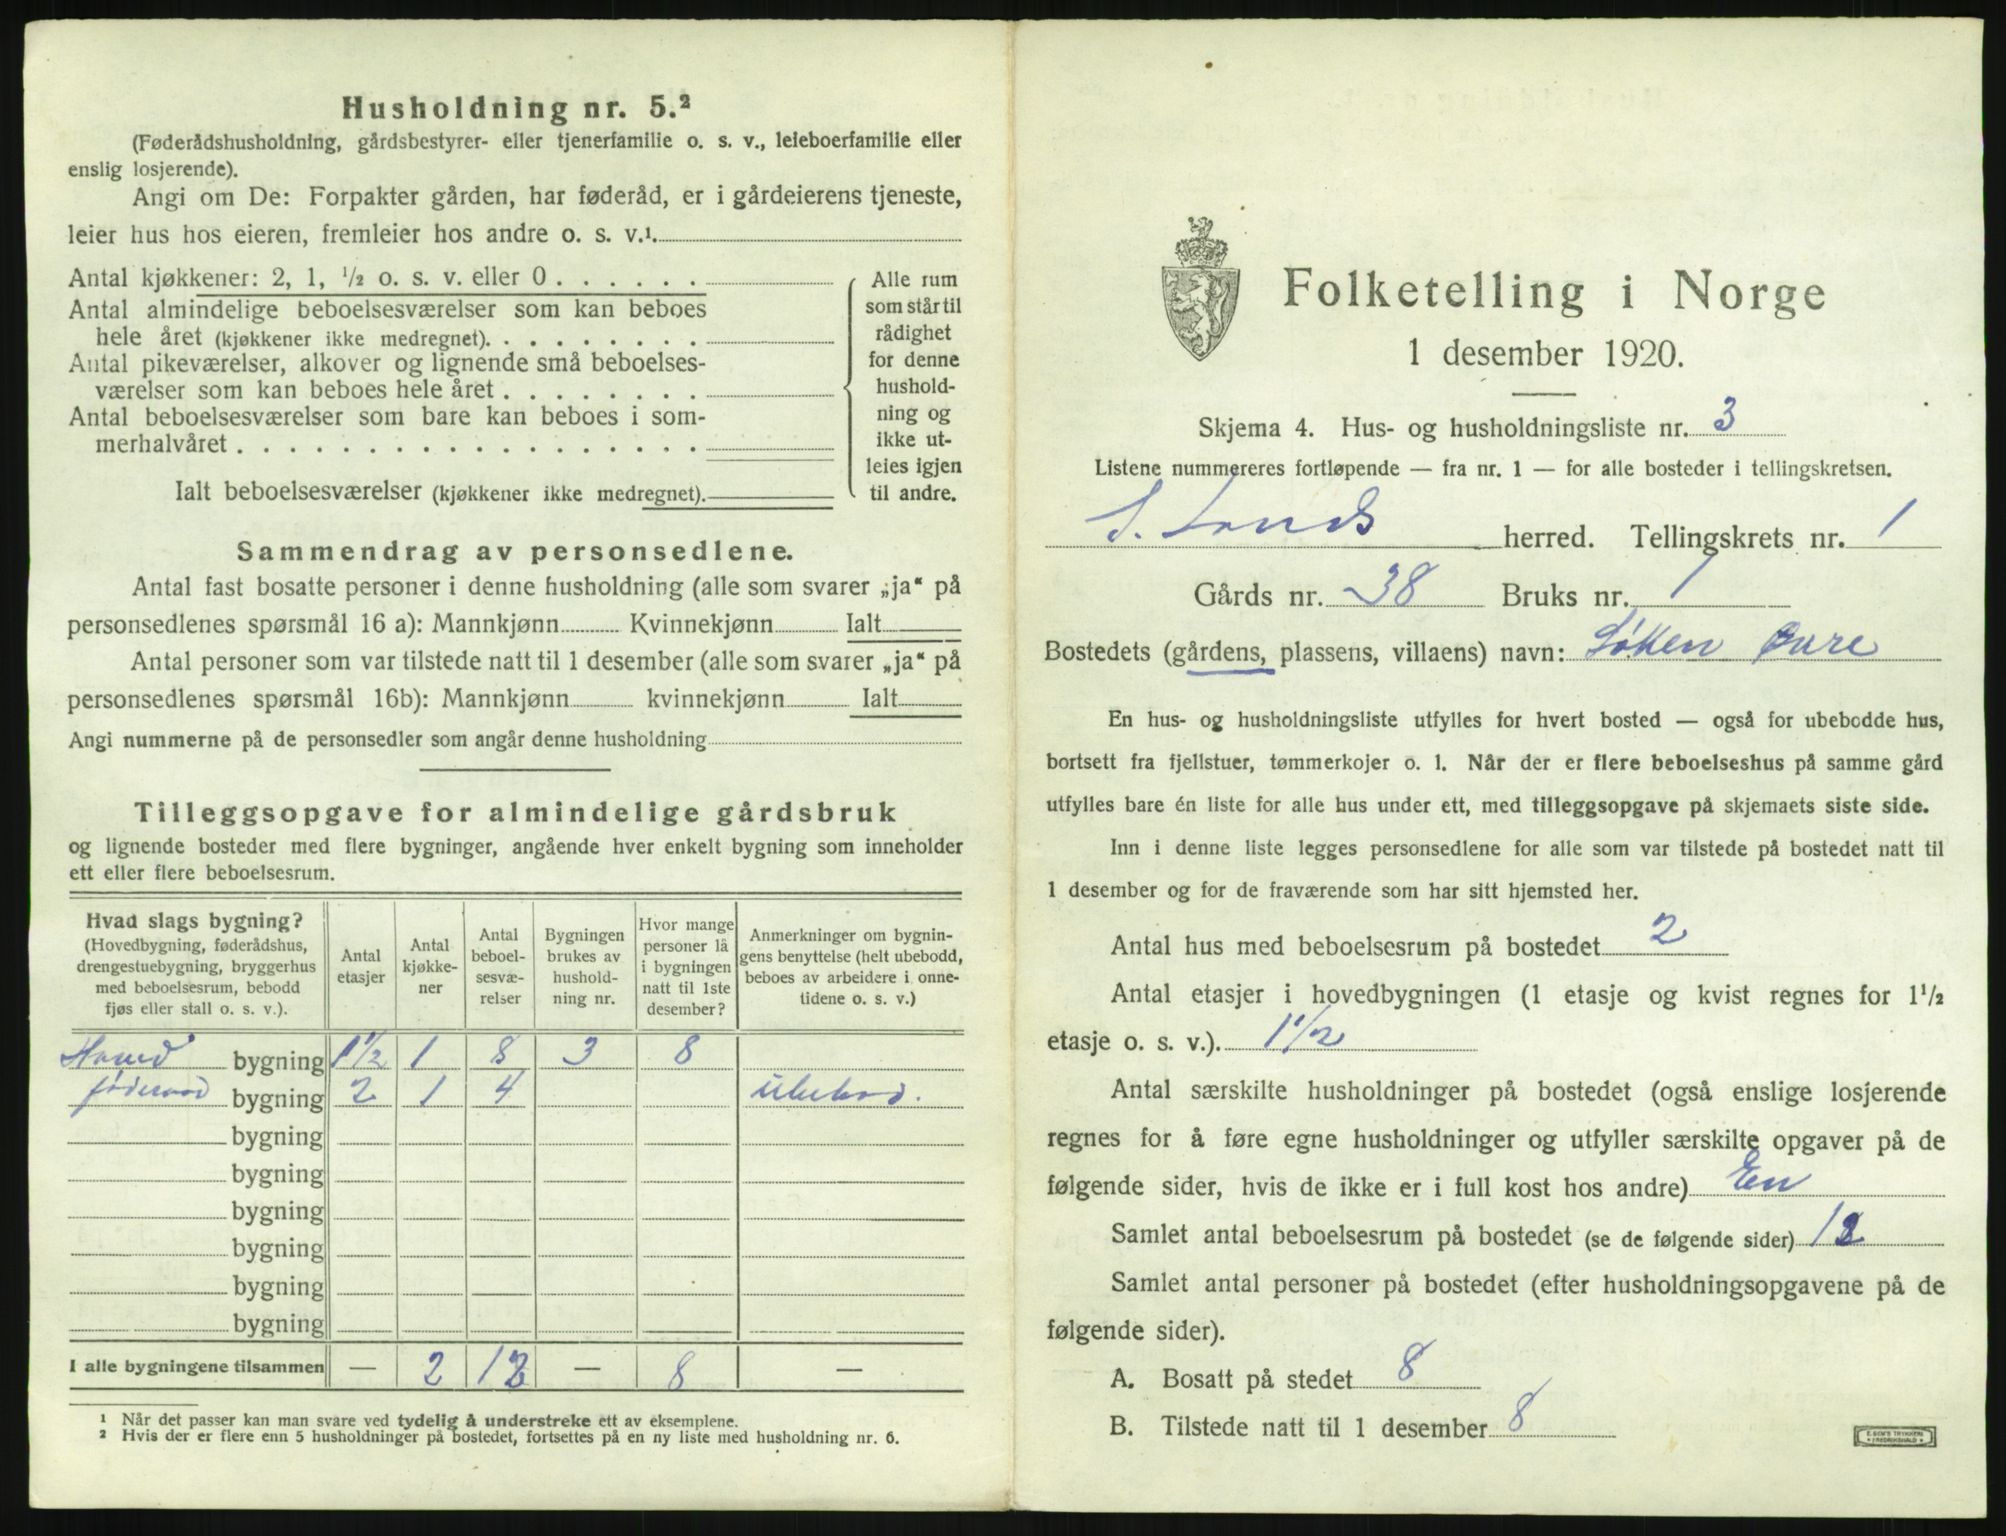 Husholdning nr. 5.²
(Føderådshusholdning, gårdsbestyrer- eller tjenerfamilie o. s. v., leieboerfamilie eller
enslig losjerende).
Angi om De: Forpakter gården, har føderåd, er i gårdeierens tjeneste,
leier hus hos eieren, fremleier hos andre o. s. v.¹.
Antal kjøkkener: 2, 1, ½ o. s. v. eller 0 . . . . . .
Antal almindelige beboelsesværelser som kan beboes
hele året (kjøkkener ikke medregnet). . . . . . . . .
Antal pikeværelser, alkover og lignende små beboelses-
værelser som kan beboes hele året . . . . . . . .
Antal beboelsesværelser som bare kan beboes i som-
merhalvåret . . . . . . . . . . . . . . . . . .
Ialt beboelsesværelser (kjøkkener ikke medregnet).
Alle rum
som står til
rådighet
for denne
hushold-
ning og
ikke ut-
leies igjen
til andre.
Sammendrag av personsedlene.
Antal fast bosatte personer i denne husholdning (alle som svarer „ja“ på
personsedlenes spørsmål 16 a): Mannkjønn Kvinnekjønn Ialt
Antal personer som var tilstede natt til 1 desember (alle som svarer „ja“ på
personsedlenes spørsmål 16b): Mannkjønn kvinnekjønn Ialt
Angi nummerne på de personsedler som angår denne husholdning
Tilleggsopgave for almindelige gårdsbruk
og lignende bosteder med flere bygninger, angående hver enkelt bygning som inneholder
ett eller flere beboelsesrum.
Hvad slags bygning?
(Hovedbygning, føderådshus,
drengestuebygning, bryggerhus
med beboelsesrum, bebodd
fjøs eller stall o. s. v.).
Antal
etasjer
Antal
kjøkke-
ner
Antal
beboel-
sesvæ-
relser
Bygningen
brukes av
hushold-
ning nr.
Hvor mange
personer lå
i bygningen
natt til 1ste
desember?
Anmerkninger om bygnin-
gens benyttelse (helt ubebodd,
beboes av arbeidere i onne-
tidene o. s. v.)
Hoved bygning 1½ 1 8 3 8
føderaad bygning 2 1 4 ubebod.
bygning
bygning
bygning
bygning
bygning
bygning
I alle bygningene tilsammen — 2 12 — 8 —
¹ Når det passer kan man svare ved tydelig å understreke ett av eksemplene.
² Hvis der er flere enn 5 husholdninger på bostedet, fortsettes på en ny liste med husholdning nr. 6.
Folketelling i Norge
1 desember 1920.
Skjema 4. Hus- og husholdningsliste nr. 3
Listene nummereres fortløpende — fra nr. 1 — for alle bosteder i tellingskretsen.
S. Lands herred. Tellingskrets nr. 1
Gårds nr. 38 Bruks nr. 1
Bostedets (gårdens, plassens, villaens) navn: Søkken Øvre
En hus- og husholdningsliste utfylles for hvert bosted — også for ubebodde hus,
bortsett fra fjellstuer, tømmerkojer o. l. Når der er flere beboelseshus på samme gård
utfylles bare én liste for alle hus under ett, med tilleggsopgave på skjemaets siste side.
Inn i denne liste legges personsedlene for alle som var tilstede på bostedet natt til
1 desember og for de fraværende som har sitt hjemsted her.
Antal hus med beboelsesrum på bostedet 2
Antal etasjer i hovedbygningen (1 etasje og kvist regnes for 1½
etasje o. s. v.). 1½
Antal særskilte husholdninger på bostedet (også enslige losjerende
regnes for å føre egne husholdninger og utfyller særskilte opgaver på de
følgende sider, hvis de ikke er i full kost hos andre) En
Samlet antal beboelsesrum på bostedet (se de følgende sider) 12
Samlet antal personer på bostedet (efter husholdningsopgavene på de
følgende sider).
A. Bosatt på stedet 8
B. Tilstede natt til 1 desember 8
E. SEM'S TRYKKERI
FREDRIKSHALD